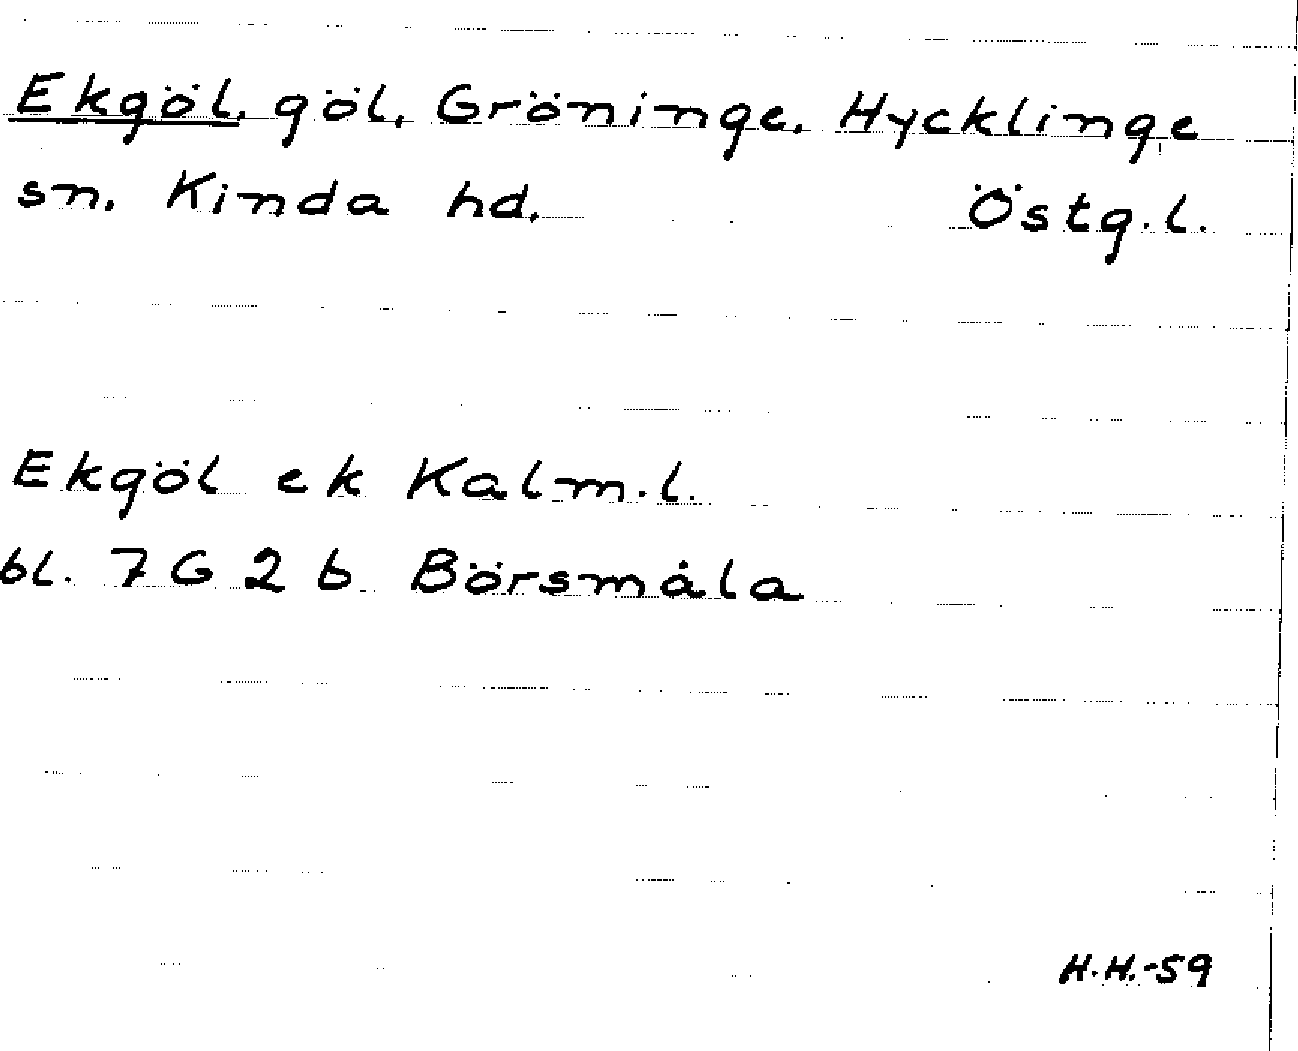 Ekgöl, göl, Gröninge, Hycklinge
sn. Kinda hd. Östg.l.
Ekgöl ek Kalm.l.
bl. 7 G 2 b Börsmåla
H.H.-59